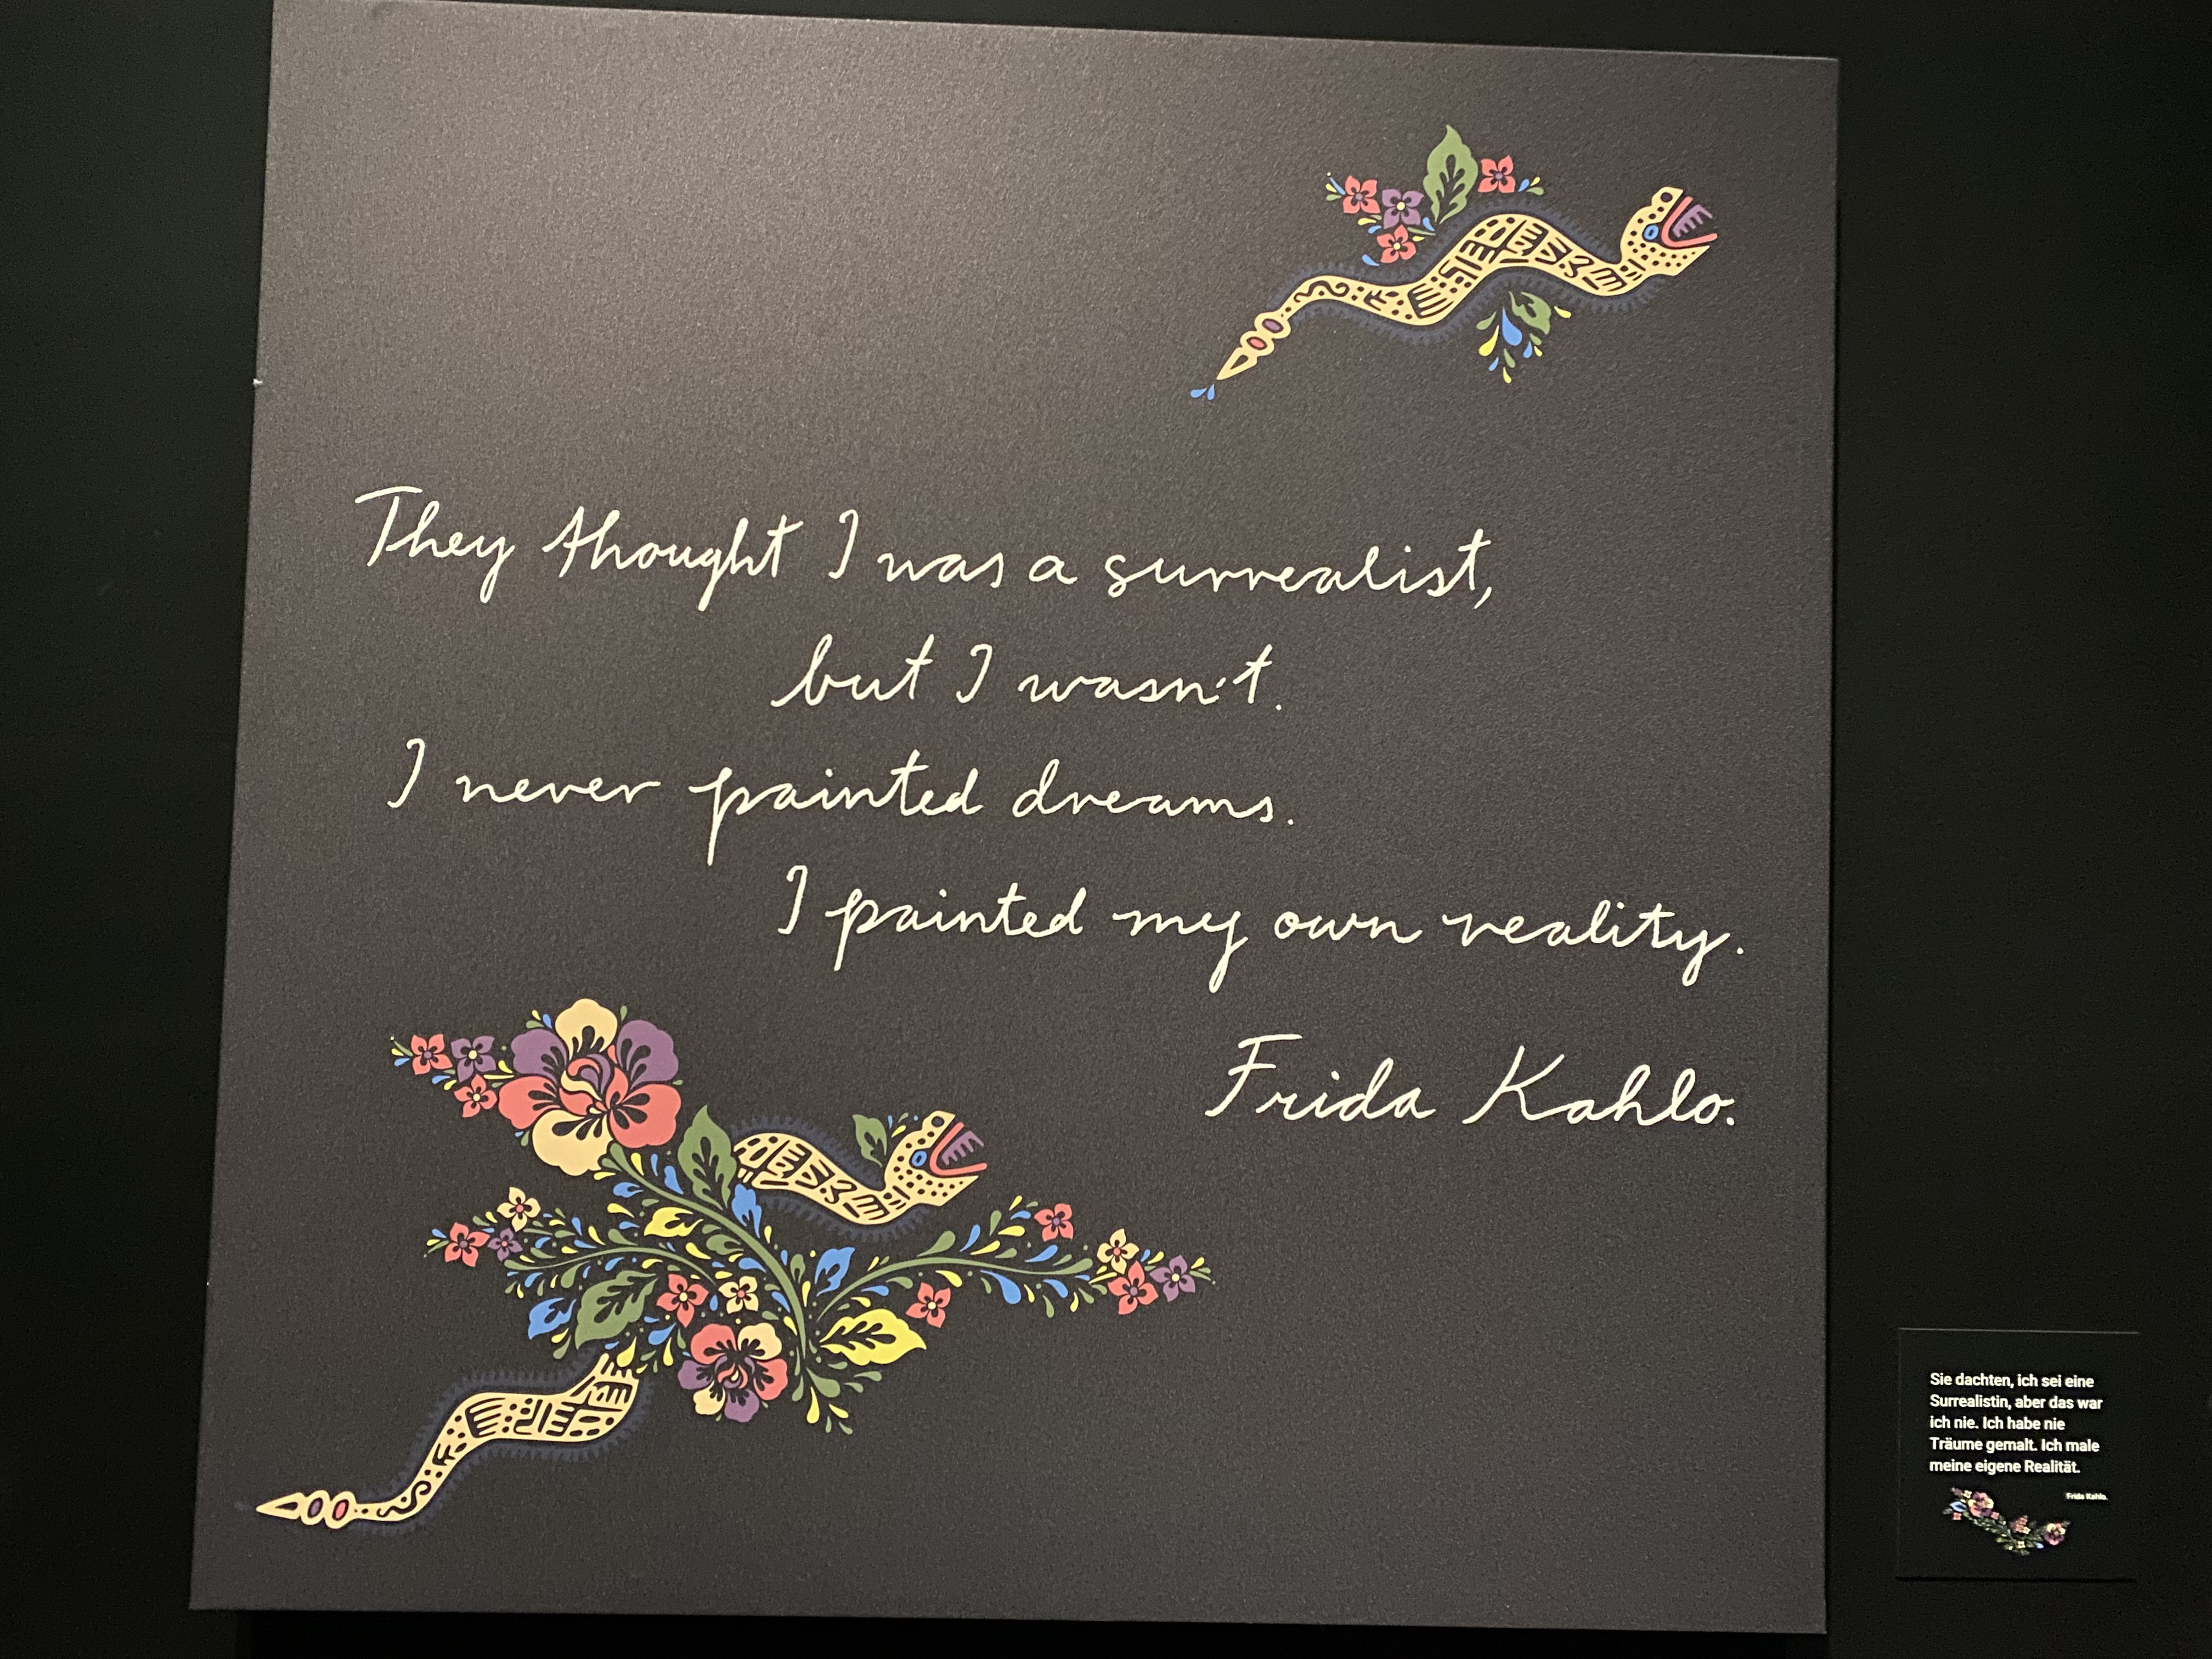 They thought I was a surrealist,
but I wasn't.
I never painted dreams.
I painted my own reality.
Frida Kahlo.
Sie dachten, ich sei eine
Surrealistin, aber das war
ich nie. Ich habe nie
Träume gemalt. Ich male
meine eigene Realität.
Frida Kahlo.